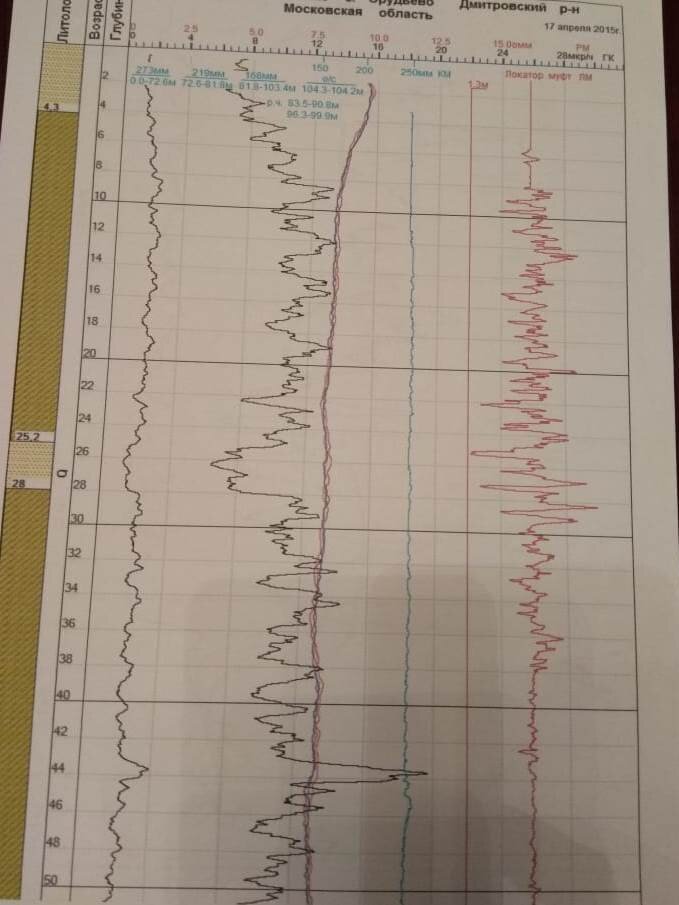 Орудьево Дмитровский р-н
Московская область
17 апреля 2015г.
Возрас
0 2.5 5.0 7.5 10.0 12.5 15.0омм РМ
0 4 8 12 16 20 24 28мкр/ч ГК
273мм 219мм 168мм 150 200 250мм КМ
0.0-72.6м 72.6-81.8м 81.8-103.4м 104.3-104.2м
р.ч. 83.5-90.8м
96.3-99.9м
1.3м
Локатор муфт ЛМ
2
4
4,3
6
8
10
12
14
16
18
20
22
24
25,2
26
Q
28
28
30
32
34
36
38
40
42
44
46
48
50